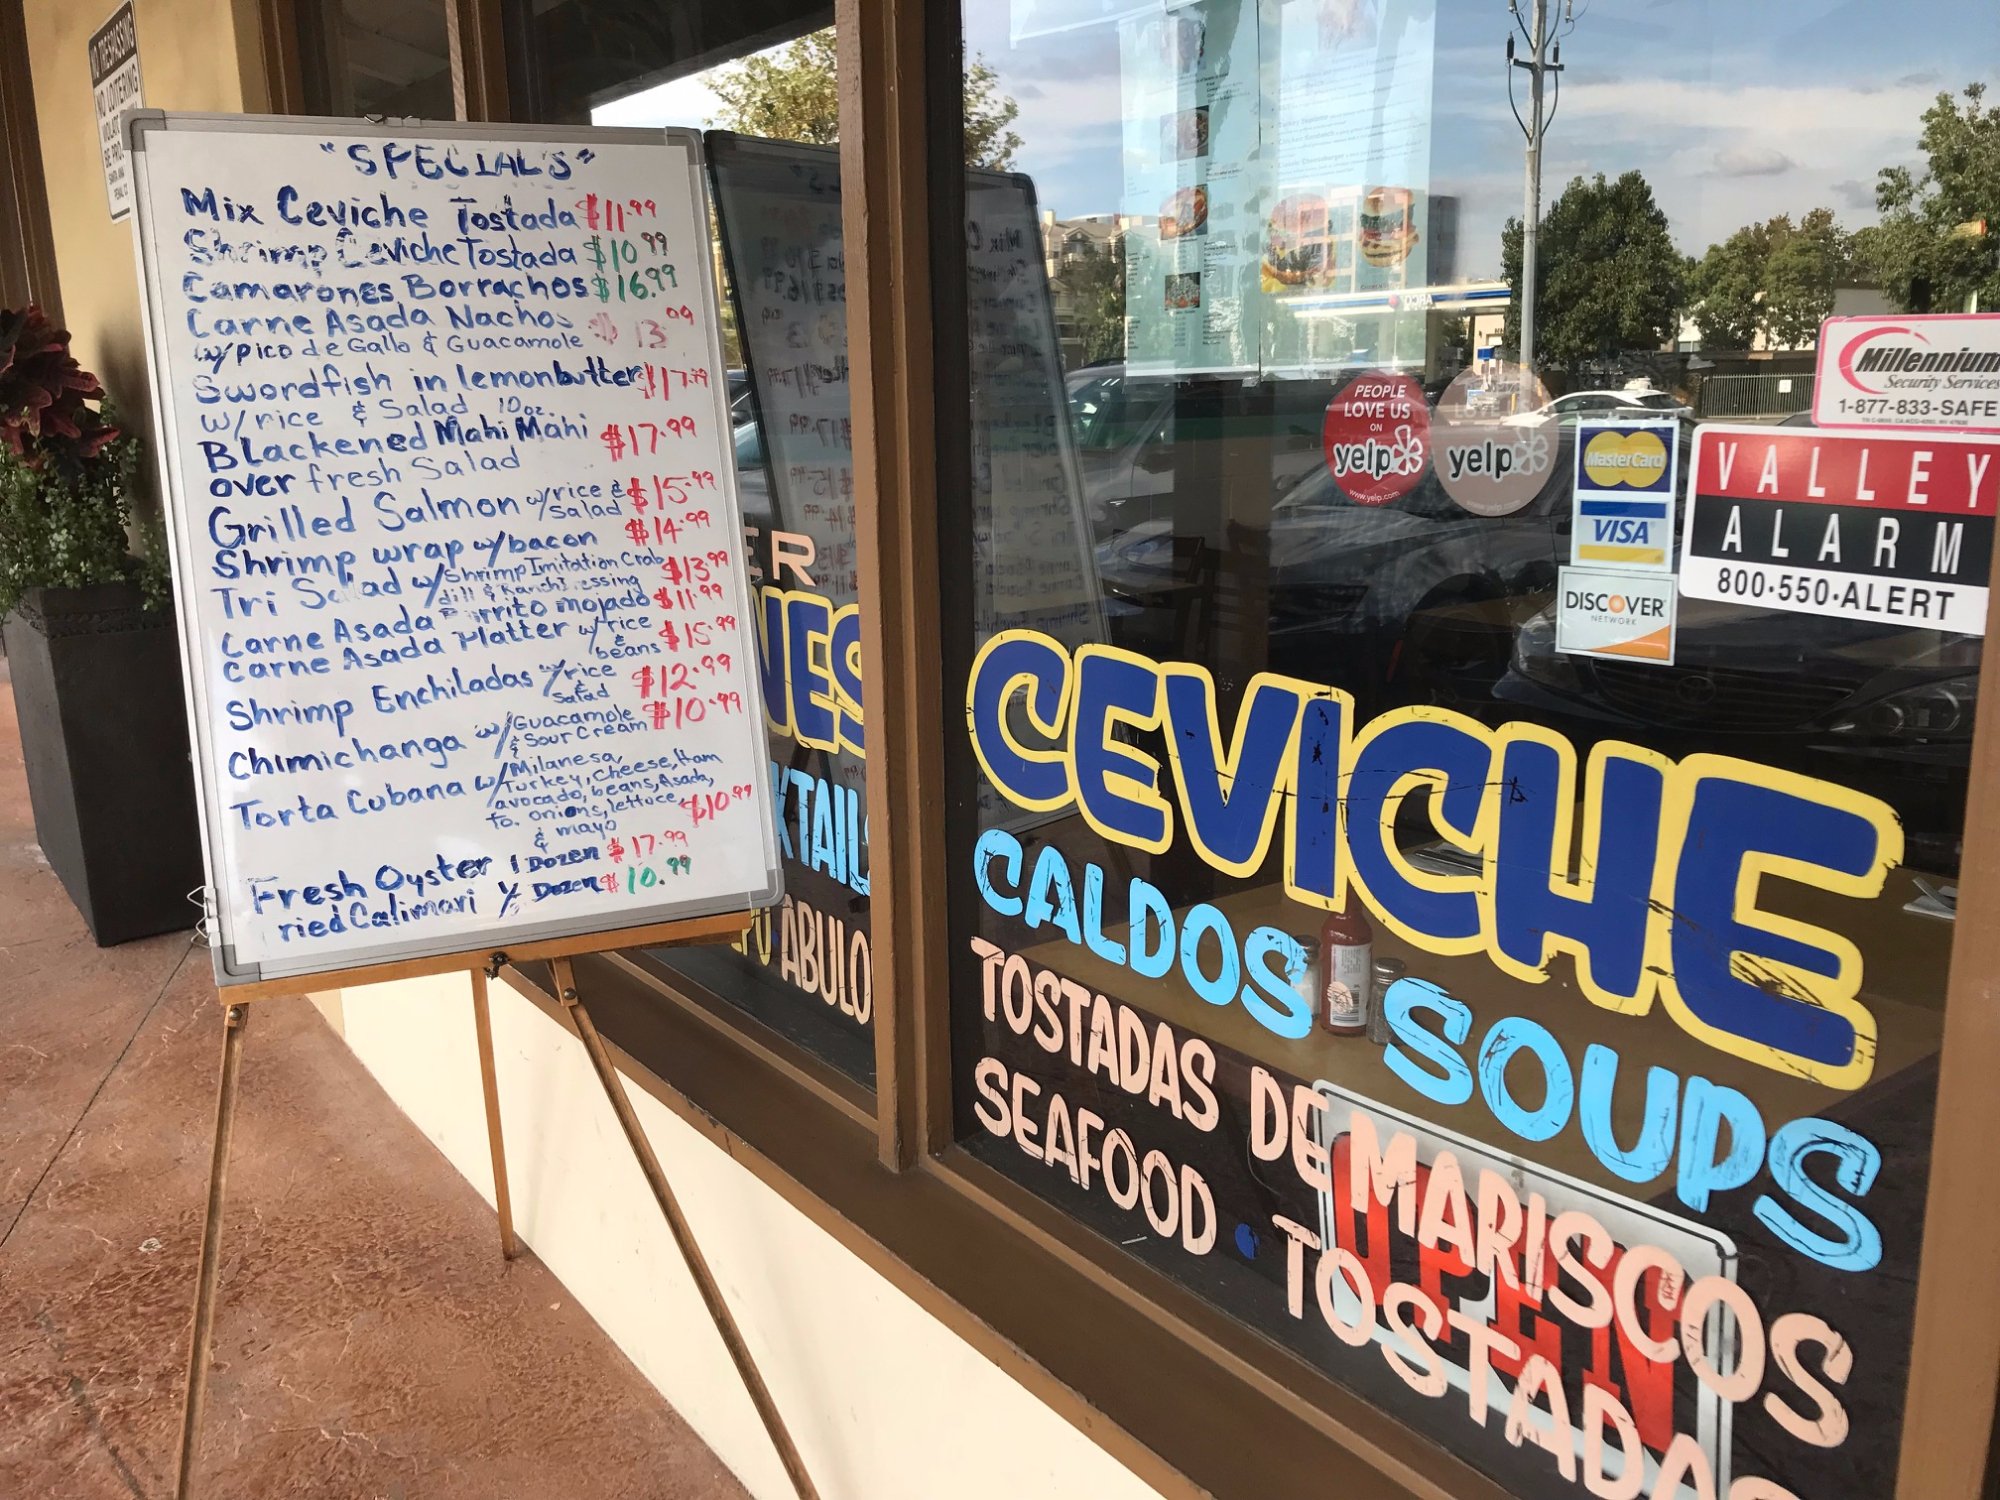 NO TRESPASSING
NO LOITERING
"SPECIAL'S"
Mix Ceviche Tostada $11.99
Shrimp Ceviche Tostada $10.99
Camarones Borrachos $16.99
Carne Asada Nachos $13.99
w/pico de Gallo & Guacamole
Swordfish in lemonbutter $17.99
w/rice & Salad 10oz.
Blackened Mahi Mahi $17.99
over fresh Salad
Grilled Salmon w/rice & Salad $15.99
Shrimp wrap w/bacon $14.99
Tri Salad w/Shrimp Imitation Crab $13.99
dill & Ranch
Carne Asada Burrito mojado $11.99
Carne Asada Platter w/rice & beans $15.99
Shrimp Enchiladas w/rice & salad $12.99
Chimichanga w/Guacamole & Sour Cream $10.99
Torta Cubana w/Milanesa,
Turkey, cheese, Ham
avocado, beans, Asada,
to. onions, lettuce, $10.99
& mayo
Fresh Oyster 1 Dozen $17.99
ried Calimari 1/2 Dozen $10.99
ER
NES
KTAIL
ABULO
PEOPLE
LOVE US
ON
yelp
www.yelp.com
yelp
MasterCard
VISA
DISCOVER
NETWORK
Millennium
Security Services
1-877-833-SAFE
VALLEY
ALARM
800·550·ALERT
ARCO
CEVICHE
CALDOS SOUPS
TOSTADAS DE MARISCOS
SEAFOOD · TOSTADAS
OPEN